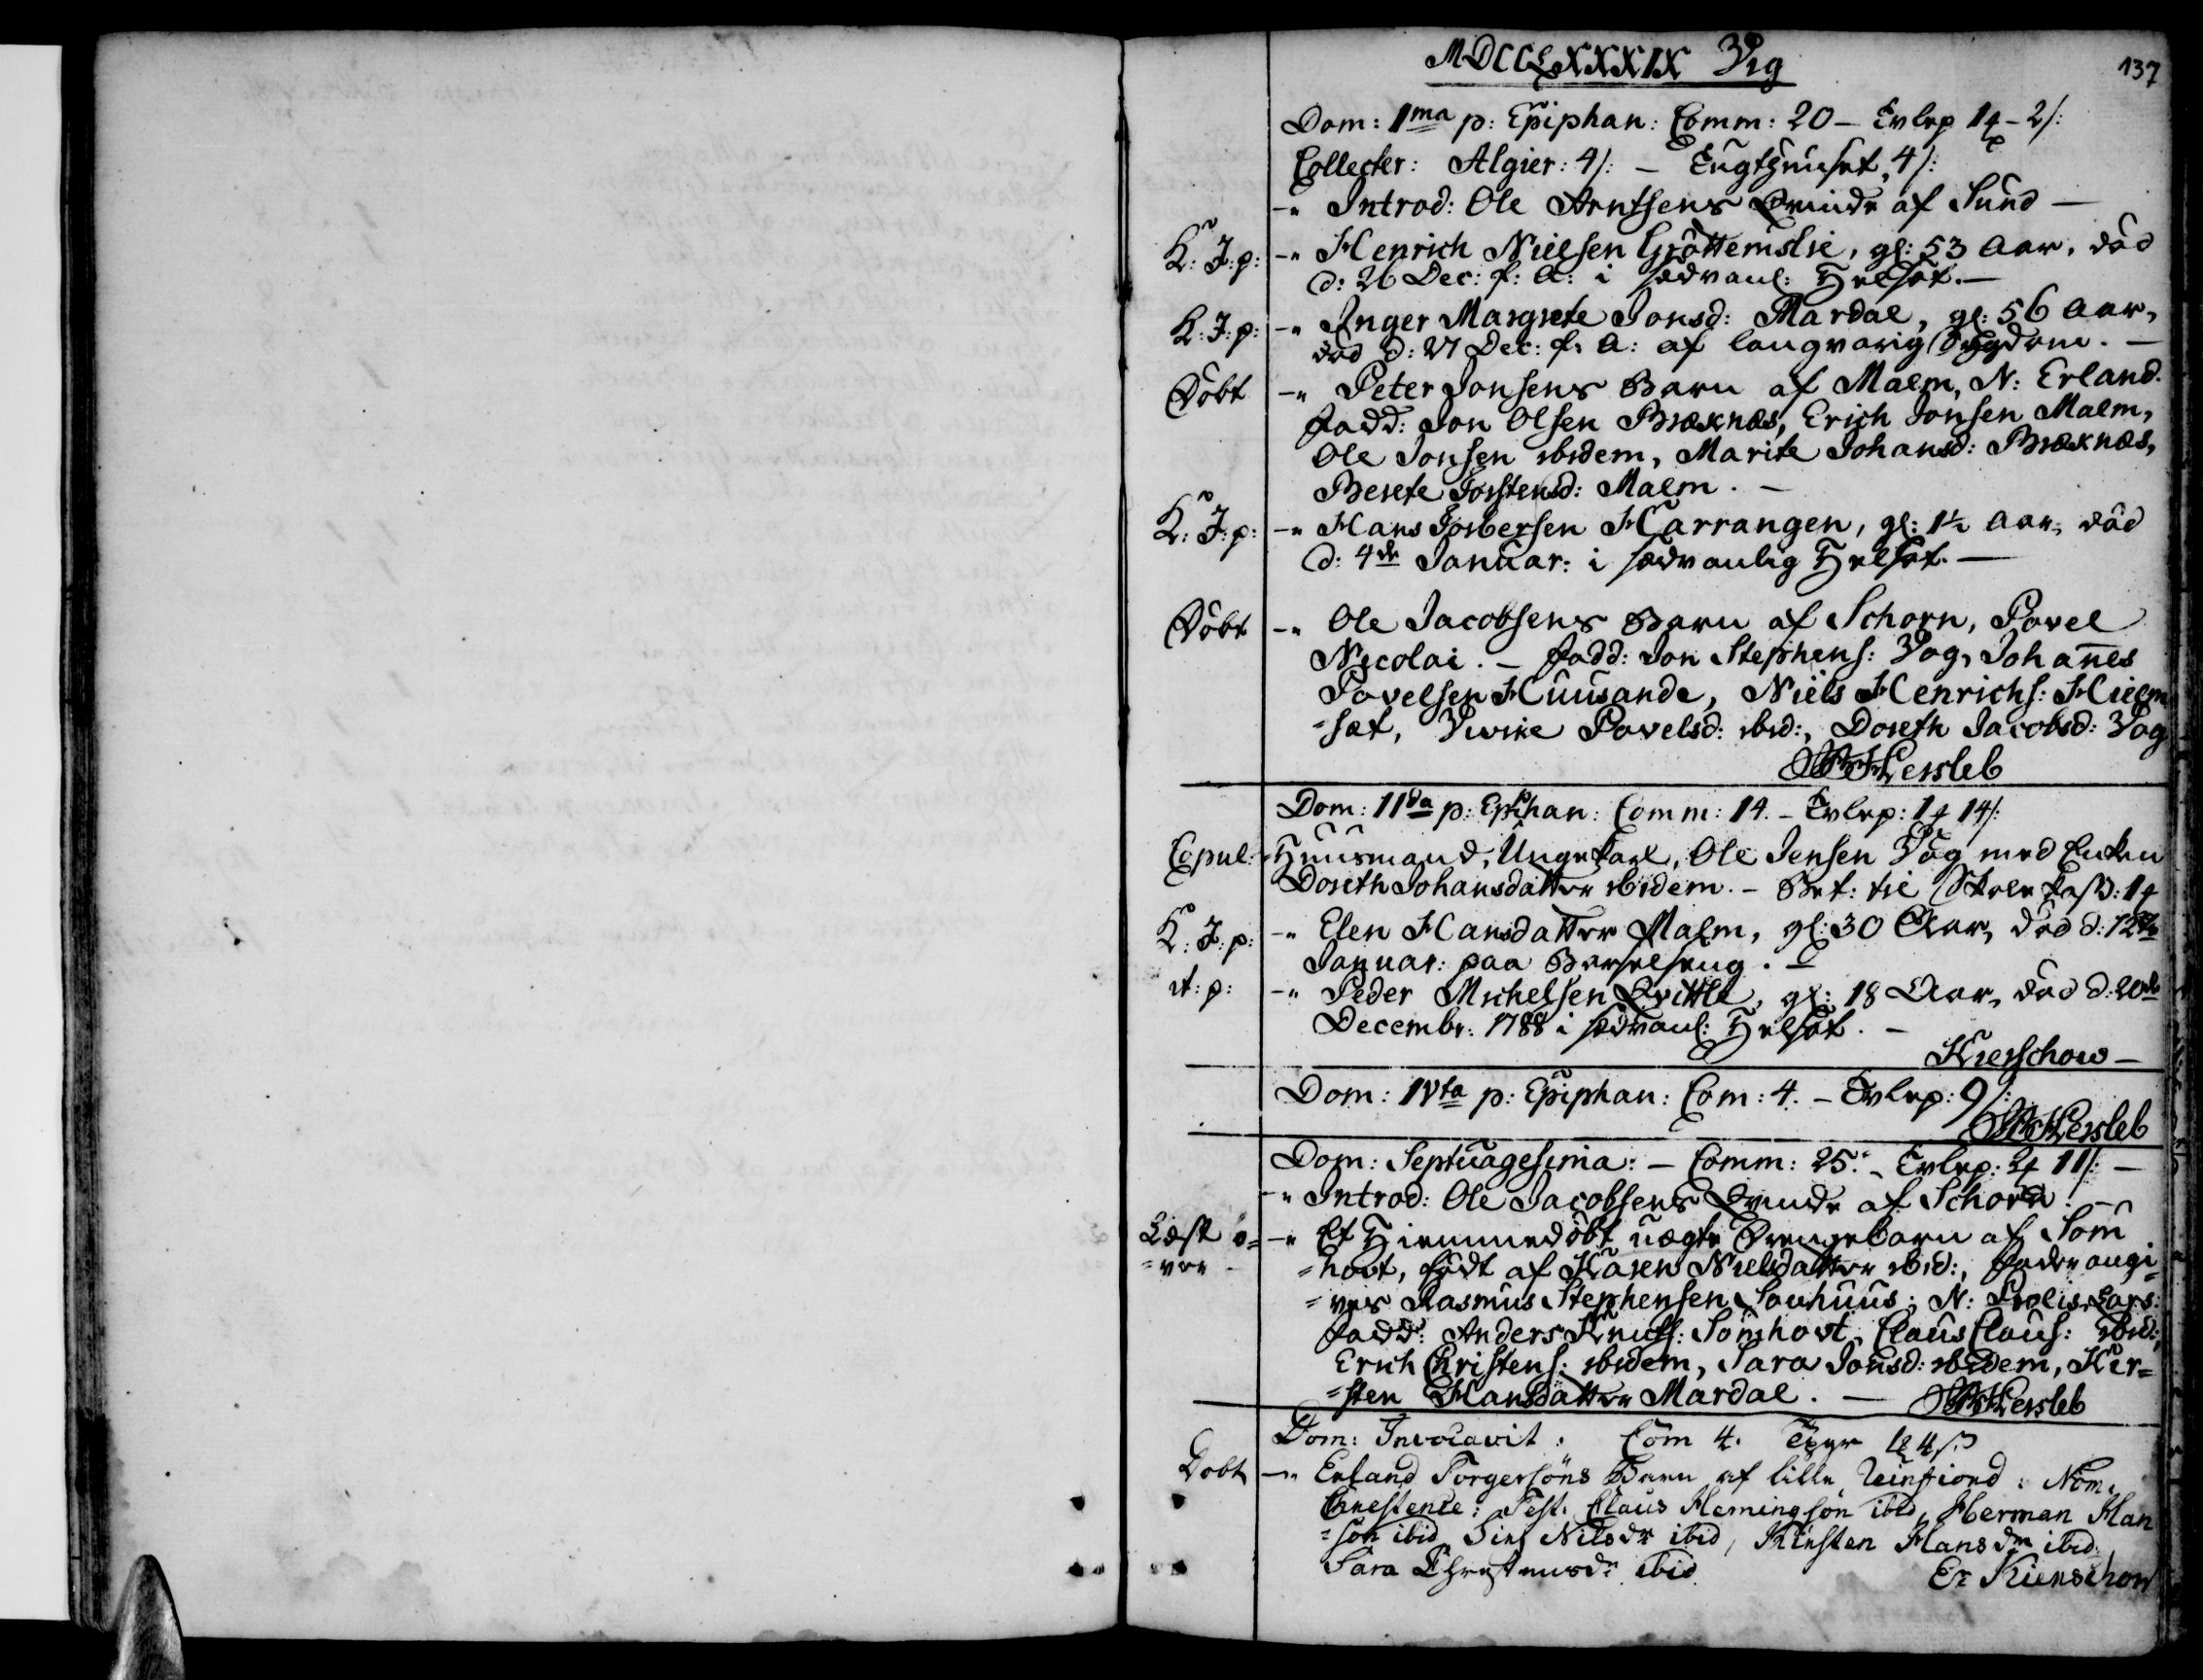 MDCCLXXXIX Vig
137
Dom: 1ma p: Epiphan: Comm: 20 - Tvlep 1 - 2/:
Collecter: Algier: 4/: - Tugthuuset, 4/:
-" Introd: Ole Arntsens Qvinde af Sund -
K: J: p: -" Henrich Nielsen Grøttemslie, gl: 53 Aar, død
d: 26 Dec: f: A: i sædvanl: Helsot. -
K: J: p: -" Inger Margrete Jonsd: Mardal, gl: 56 Aar,
død d: 27 Dec: f: A: af langvarig Sygdom. -
Døbt -" Peter Jonsens Barn af Malm, N: Erland.
Fadd: Jon Olsen Bræknæs, Erich Jonsen Malm,
Ole Jonsen ibidem, Marite Johansd: Bræknæs,
Berete Torstensd: Malm. -
K: J: p: -" Hans Torbersen Harrangen, gl: 1½ Aar, død
d: 4de Januar: i sædvanlig Helsot. -
Døbt -" Ole Jacobsens Barn af Schorn, Povel
Nicolai. - Fadd: Jon Stephens: Vog, Johanes
Povelsen Huusande, Niels Henrichs: Hielm
=set, Povelsd: ibid:, Doreth Jacobsd: Vog
Hersleb
Dom: 11da p: Epiphan: Comm: 14. - Tvlep: 1 14/:
Copul: -" Huusmand, Ungekarl, Ole Jensen Vog med Enken
Doreth Johansdatter ibidem. - Bet: til Skole Kass: 1
K: J: p: -" Elen Hansdatter Malm, gl: 30 Aar, død d: 12te
Januar: paa Barselseng. -
it: p: -" Peder Michelsen Qvittle, gl: 18 Aar, død d: 20de
Decembr: 1788 i sædvanl: Helsot. -
Kierschow -
Dom: IVta p: Epiphan: Com: 4. - Tvlep: 9/:
Hersleb
Dom: Septuagesima: - Comm: 25. - Tvlep: 2 11/: -
-" Introd: Ole Jacobsens Qvinde af Schorn. -
Læst o= -" Et Hiemmedøbt uægte Drengebarn af Som
=ver - =hovt, født af Karen Nielsdatter ibid:, Fader angi
=ves Rasmus Stephensen Sovhuus; N: Lars:
Fadd: Anders Knuds: Somhovt, Claus Claus: ibid:,
Erich Christens: ibidem, Sara Jonsd: ibidem, Kir=
=sten Hansdatter Mardal. - Hersleb
Dom: Invocavit: Com 4. 4/:
Døbt -" Erland Torgersöns Barn af lille : Nom.
: Test. Claus Flemingsön ibid, Herman Han
=sön ibid, Siri Nilsdr ibid, Kirsten Hansdr ibid,
Sara Christensdr ibid. Er Kierschow